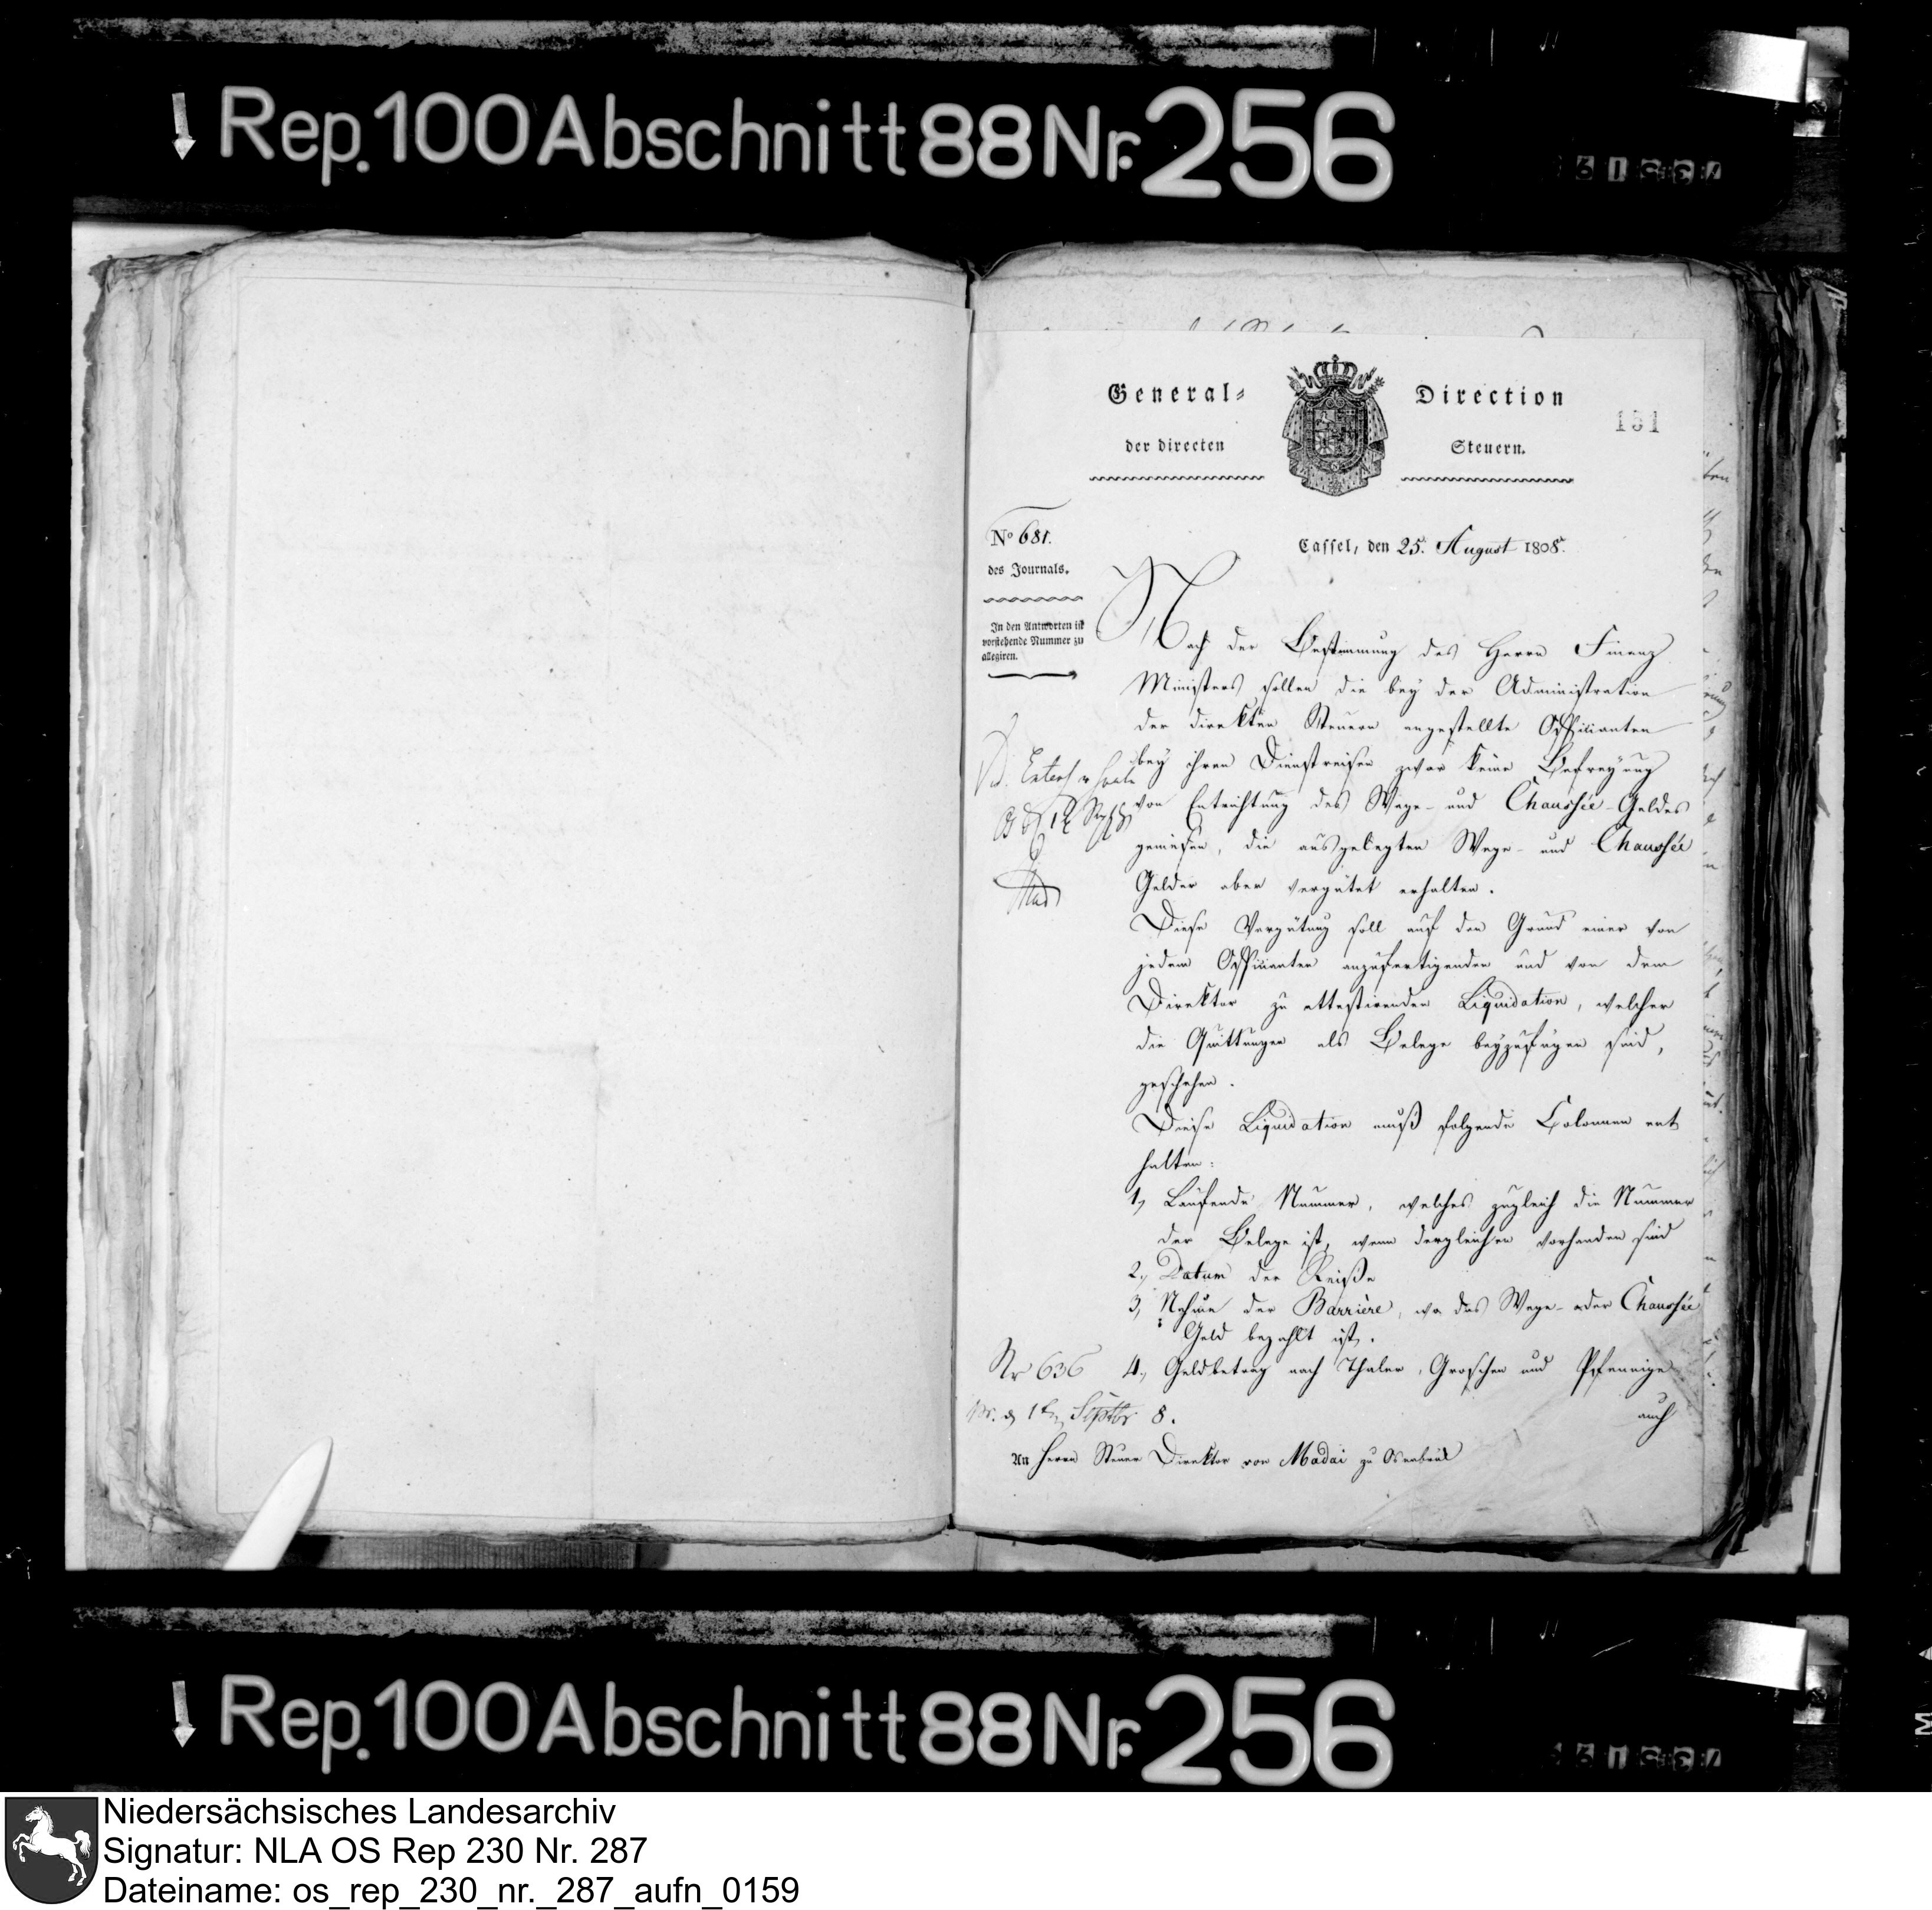 Rep. 100 Abschnitt 88 Nr. 256
General- Direction
131
der directen Steuern.
No 681.
des Journals.
In den Antworten ist
vorstehende Nummer zu
allegiren.
Cassel, den 25. August 1808.
Nach der Bestimmung des Herrn Finanz
Ministers sollen die bey der Administration
der direkten Steuern angestellte Officianten
bey ihren Dienstreisen zwar keine Befreyung
von Entrichtung des Wege- und Chaussée-Geldes
genießen, die ausgelegten Wege- und Chaussée
Gelder aber vergütet erhalten.
Diese Vergütung soll auf den Grund einer von
jedem Officianten anzufertigenden und von dem
Direktor zu attestirenden Liquidation, welcher
die Quittungen als Belege beyzufügen sind,
geschehen.
Diese Liquidation muß folgende Colonnen ent
halten:
1, Laufende Nummer, welches zugleich die Nummer
der Belege ist, wenn dergleichen vorhanden sind
2, Datum der Reiße
3, Nahme der Barrière, wo das Wege- oder Chaussée
Geld bezahlt ist.
Nr 636
4, Geldbetrag nach Thaler, Groschen und Pfennige
Septbr 8.
auch
An Herrn Steuer Direktor von Madai zu Osnabrük
Rep. 100 Abschnitt 88 Nr. 256
Niedersächsisches Landesarchiv
Signatur: NLA OS Rep 230 Nr. 287
Dateiname: os_rep_230_nr._287_aufn_0159